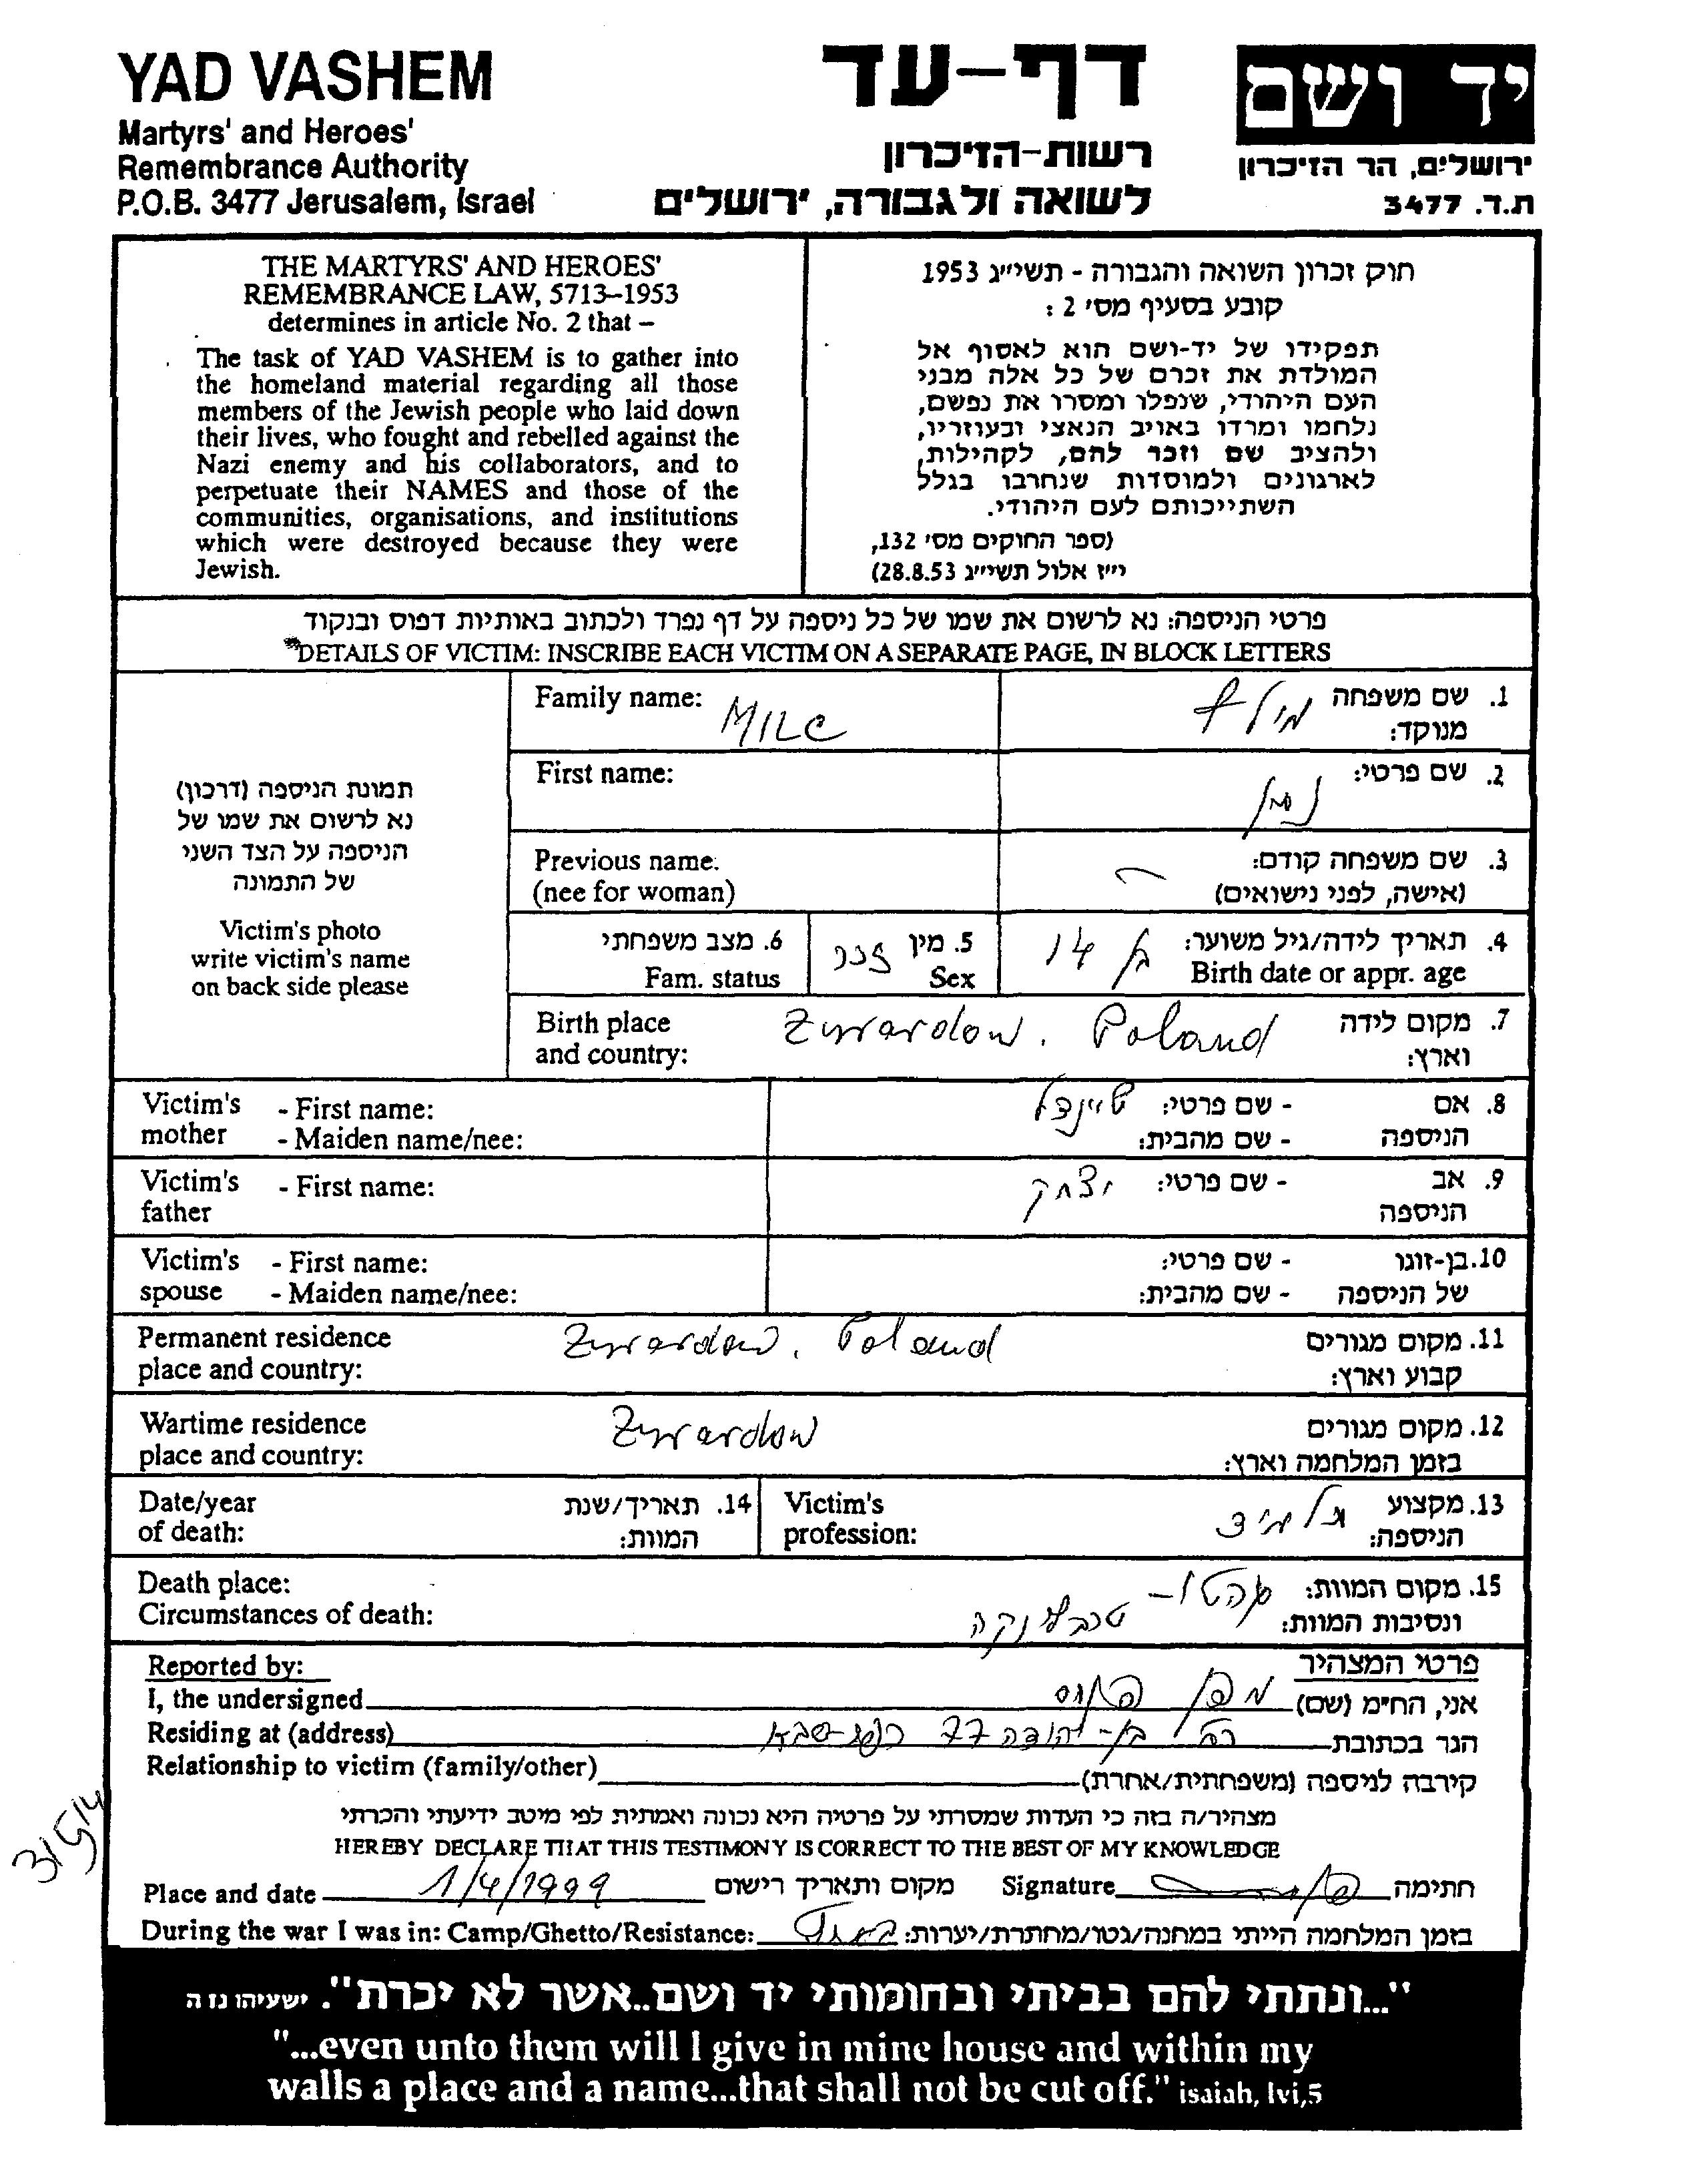 YAD VASHEM
Martyrs' and Heroes'
Remembrance Authority
P.O.B. 3477 Jerusalem, Israel
דף-עד
רשות-הזיכרון
לשואה ולגבורה, ירושלים
יד ושם
ירושלים, הר הזיכרון
ת.ד. 3477
THE MARTYRS' AND HEROES'
REMEMBRANCE LAW, 5713–1953
determines in article No. 2 that –
The task of YAD VASHEM is to gather into
the homeland material regarding all those
members of the Jewish people who laid down
their lives, who fought and rebelled against the
Nazi enemy and his collaborators, and to
perpetuate their NAMES and those of the
communities, organisations, and institutions
which were destroyed because they were
Jewish.
חוק זכרון השואה והגבורה - תשי״ג 1953
קובע בסעיף מס׳ 2 :
תפקידו של יד-ושם הוא לאסוף אל
המולדת את זכרם של כל אלה מבני
העם היהודי, שנפלו ומסרו את נפשם,
נלחמו ומרדו באויב הנאצי ובעוזריו,
ולהציב שם וזכר להם, לקהילות,
לארגונים ולמוסדות שנחרבו בגלל
השתייכותם לעם היהודי.
(ספר החוקים מס׳ 132,
י״ז אלול תשי״ג 28.8.53)
פרטי הניספה: נא לרשום את שמו של כל ניספה על דף נפרד ולכתוב באותיות דפוס ובנקוד
DETAILS OF VICTIM: INSCRIBE EACH VICTIM ON A SEPARATE PAGE, IN BLOCK LETTERS
תמונת הניספה (דרכון)
נא לרשום את שמו של
הניספה על הצד השני
של התמונה
Victim's photo
write victim's name
on back side please
Family name: MILC
1. שם משפחה מילץ
מנוקד:
First name:
2. שם פרטי: נתן
Previous name:
(nee for woman)
3. שם משפחה קודם:
(אישה, לפני נישואים)
6. מצב משפחתי
Fam. status
5. מין זכר
Sex
4. תאריך לידה/גיל משוער: בן 14
Birth date or appr. age
Birth place
and country:
Zyrardow. Poland
7. מקום לידה
וארץ:
Victim's - First name:
mother - Maiden name/nee:
8. אם - שם פרטי: שיינדל
הניספה - שם מהבית:
Victim's - First name:
father
9. אב - שם פרטי: יצחק
הניספה
Victim's - First name:
spouse - Maiden name/nee:
10. בן-זוגו - שם פרטי:
של הניספה - שם מהבית:
Permanent residence
place and country:
Zyrardow. Poland
11. מקום מגורים
קבוע וארץ:
Wartime residence
place and country:
Zyrardow
12. מקום מגורים
בזמן המלחמה וארץ:
Date/year
of death:
14. תאריך/שנת
המוות:
Victim's
profession:
13. מקצוע תלמיד
הניספה:
Death place:
Circumstances of death:
15. מקום המוות: גהטו -
ונסיבות המוות: טרבלינקה
Reported by:
פרטי המצהיר
I, the undersigned
אני, החי״מ (שם)
Residing at (address)
הגר בכתובת רח' בן-יהודה 77 כפר-סבא
Relationship to victim (family/other)
קירבה לניספה (משפחתית/אחרת)
מצהיר/ה בזה כי העדות שמסרתי על פרטיה היא נכונה ואמתית לפי מיטב ידיעתי והכרתי
HEREBY DECLARE THAT THIS TESTIMONY IS CORRECT TO THE BEST OF MY KNOWLEDGE
Place and date 1/4/1999 מקום ותאריך רישום
Signature חתימה
During the war I was in: Camp/Ghetto/Resistance:
בזמן המלחמה הייתי במחנה/גטו/מחתרת/יערות:
"...ונתתי להם בביתי ובחומותי יד ושם..אשר לא יכרת". ישעיהו נו ה
"...even unto them will I give in mine house and within my
walls a place and a name...that shall not be cut off." isaiah, lvi,5